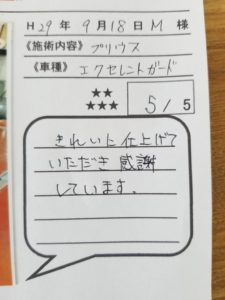 H29年9月18日M様
《施術内容》プリウス
《車種》エクセレントガード
★★
★★★
5/5
きれいに仕上げて
いただき感謝
しています.